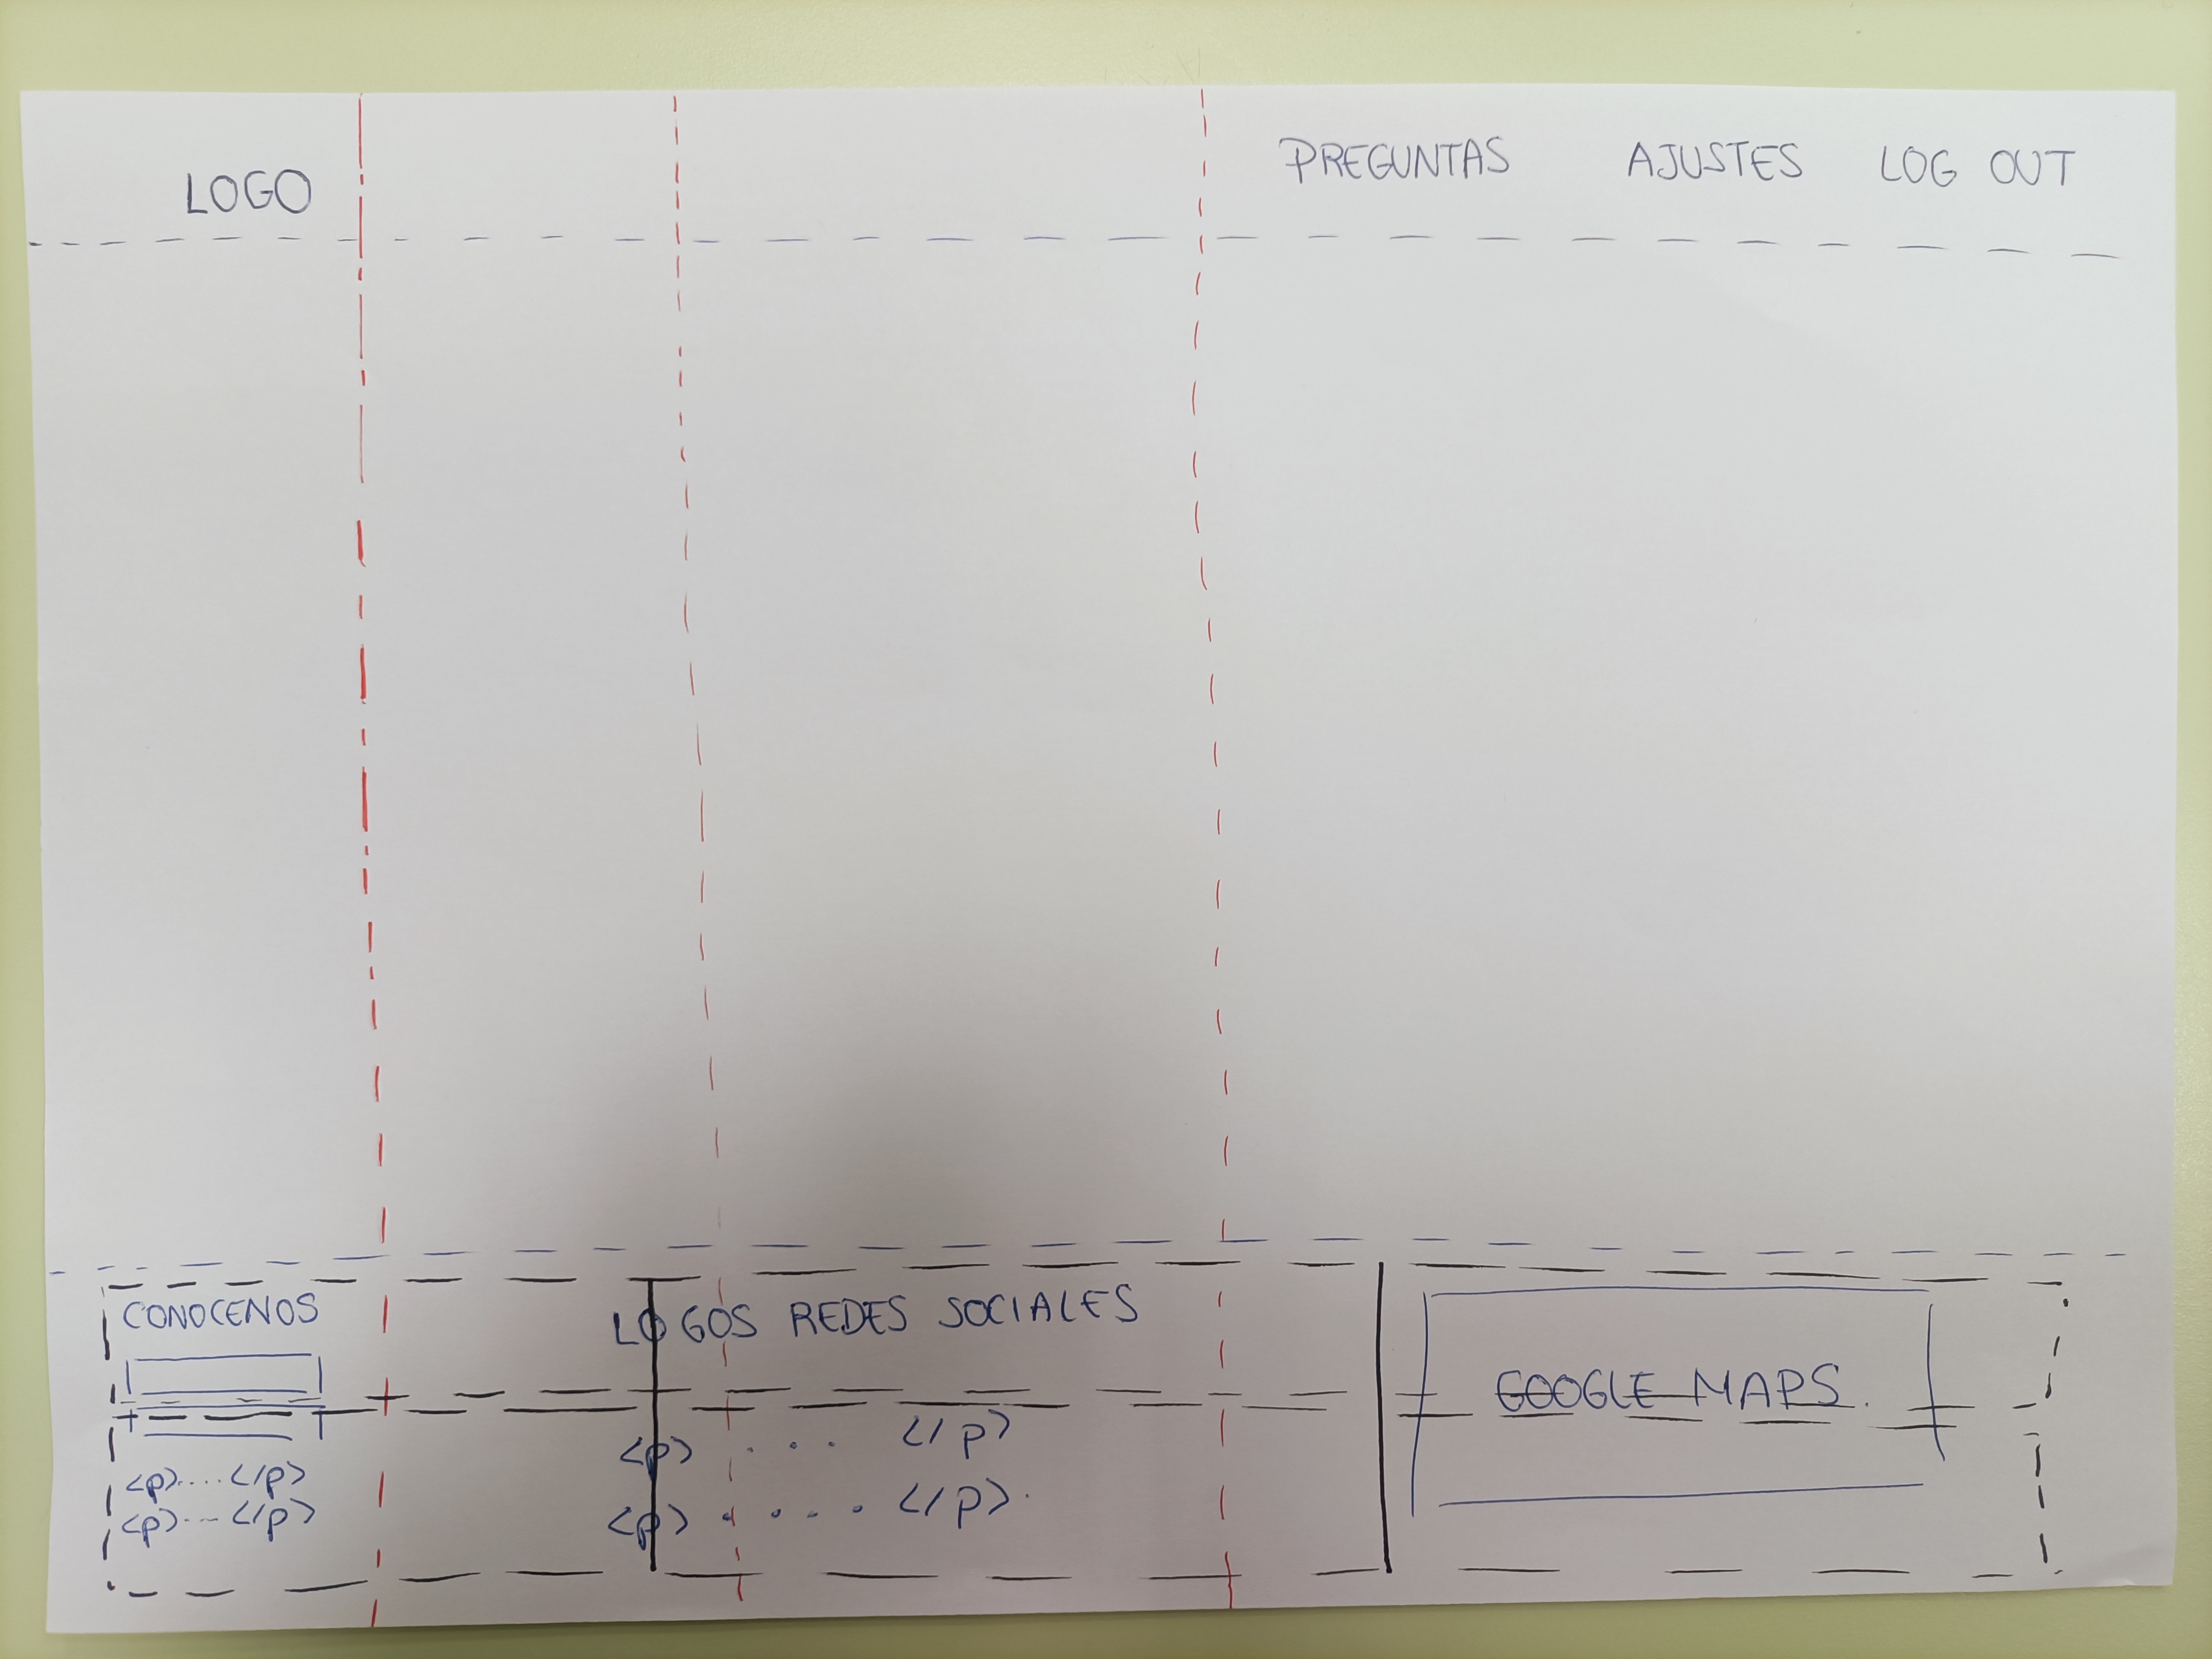 LOGO
PREGUNTAS AJUSTES LOG OUT
CONOCENOS
<p>....</p>
<p>...</p>
LOGOS REDES SOCIALES
<p> ... </p>
<p> ..... </p>.
GOOGLE MAPS.